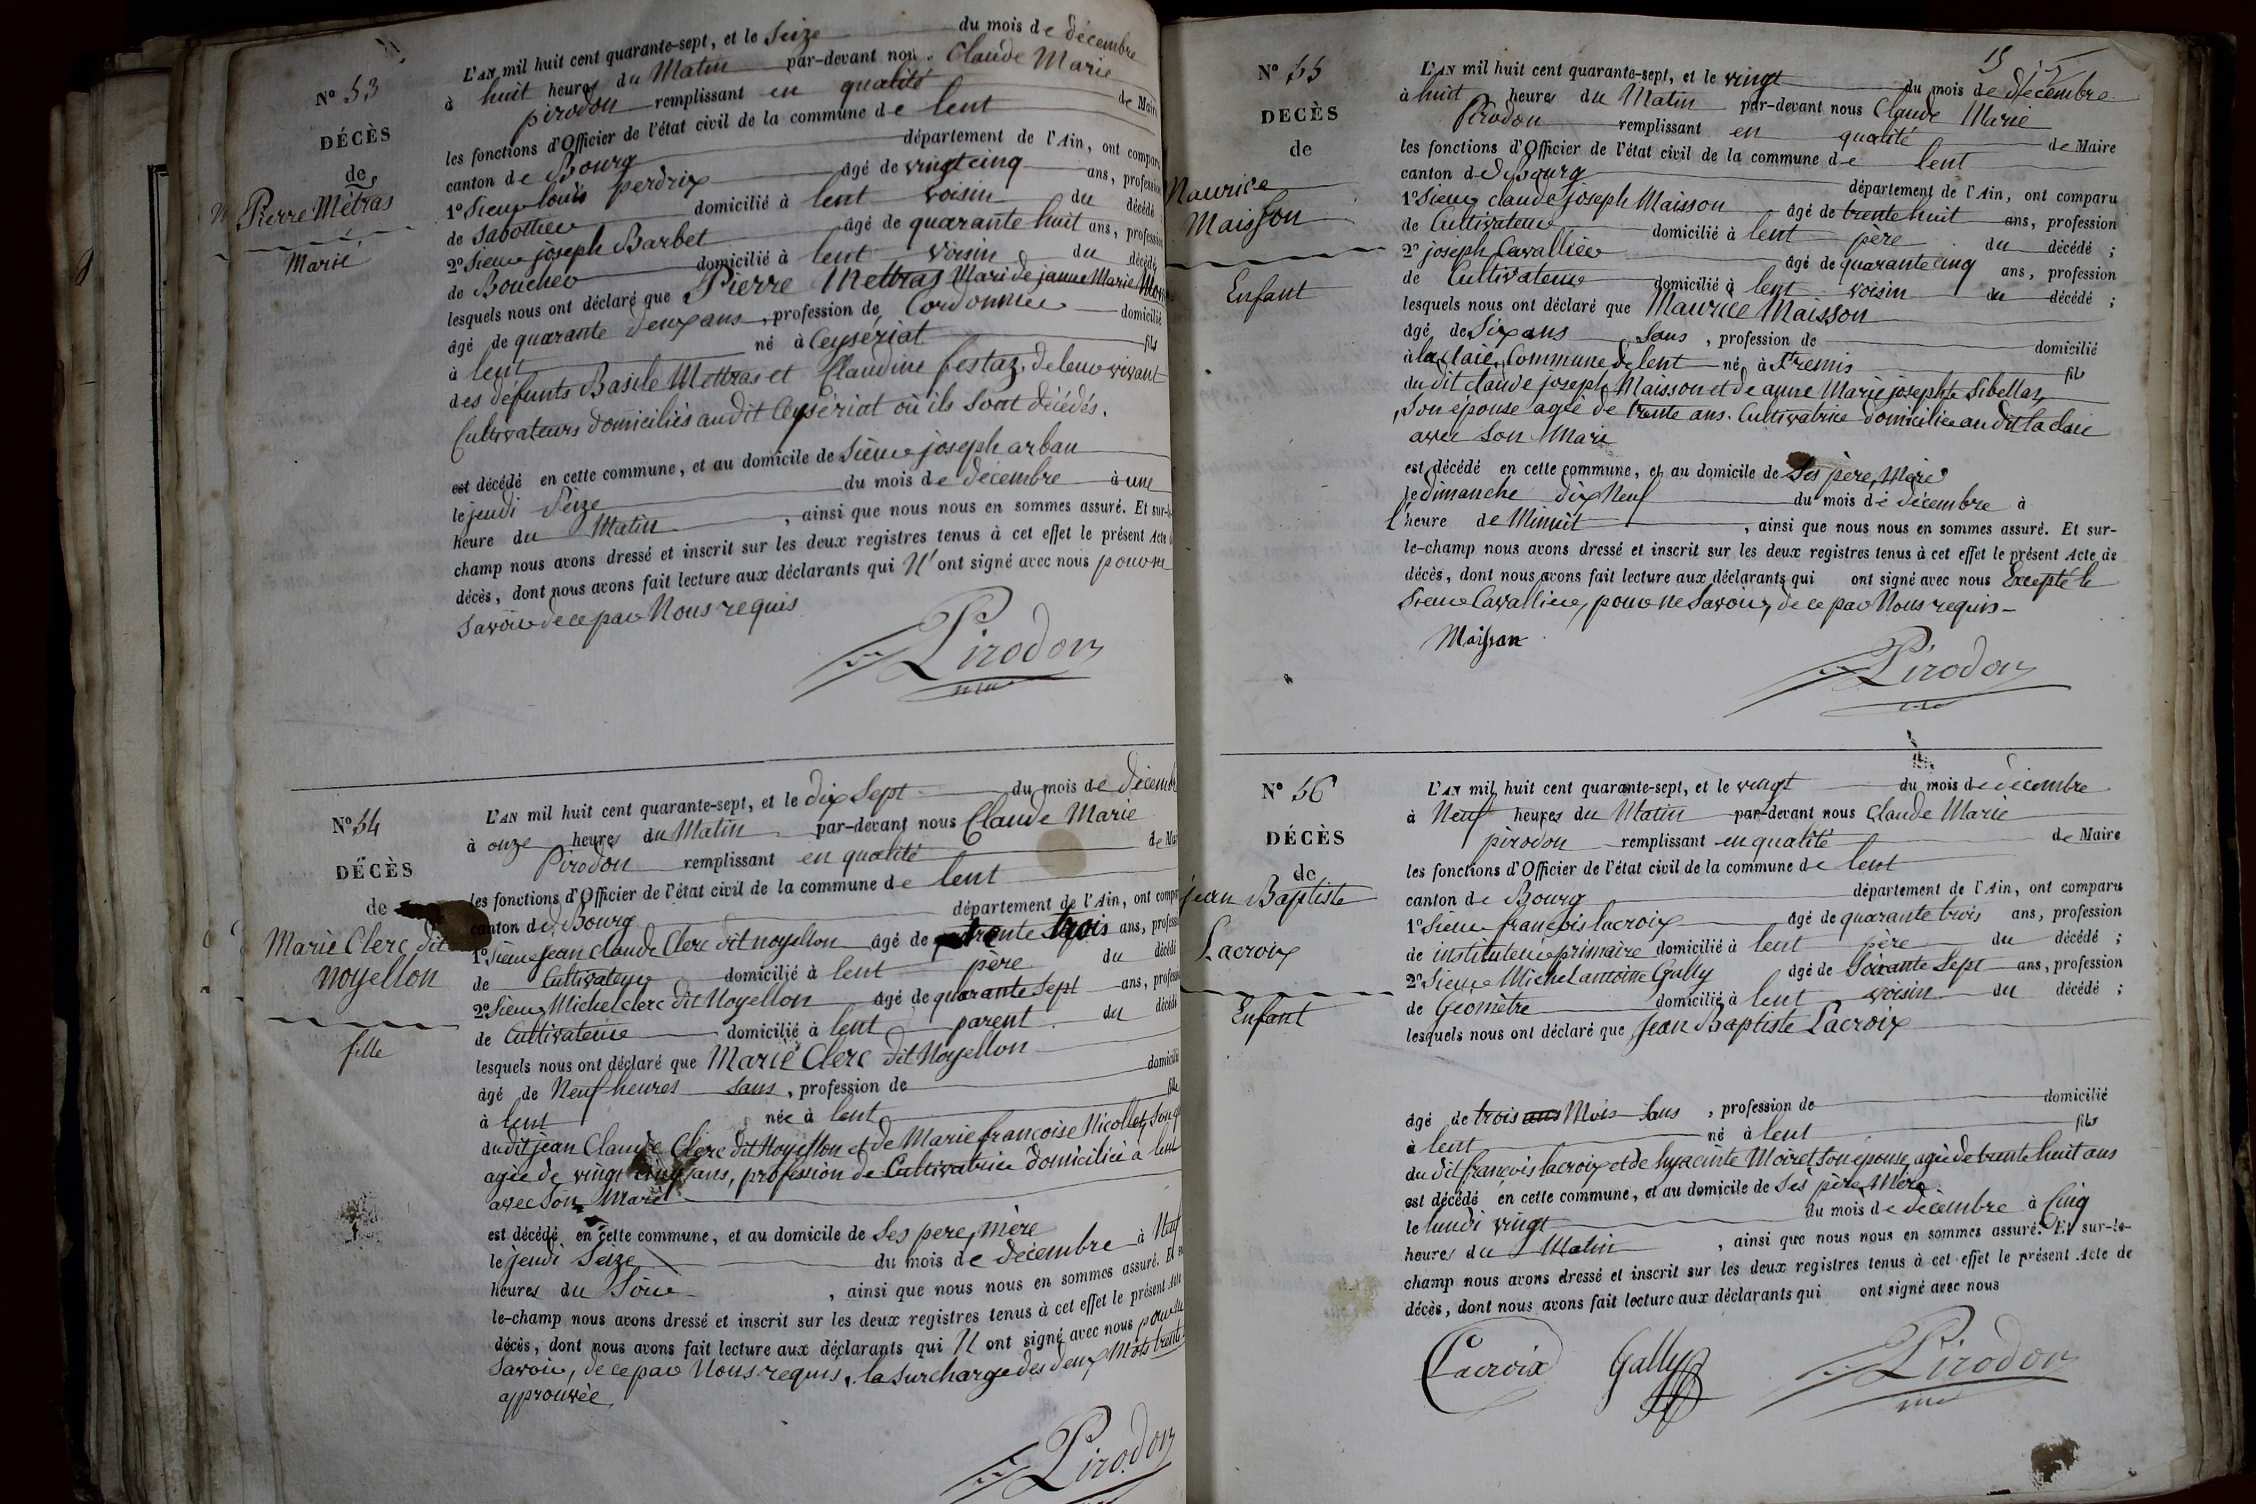 N° 53
DÉCÈS
de
Pierre Métras
Marié
L'AN mil huit cent quarante-sept, et le Seize du mois de décembre
à huit heures du Matin par-devant nous Claude Marie
pirodon remplissant en qualité de Maire
les fonctions d'Officier de l'état civil de la commune de lent
canton de Bourg département de l'Ain, ont comparu
1° Sieur louis perdrix âgé de vingt cinq ans, profession
de Sabottier domicilié à lent voisin du décédé
2° Sieur joseph Barbet âgé de quarante huit ans, profession
de Boucher domicilié à lent voisin du décédé
lesquels nous ont déclaré que Pierre Mettras Mari de janne Marie
âgé de quarante deux ans, profession de Cordonnier domicilié
à lent né à Ceyseriat fils
des défunts Basile Mettras et Claudine festaz, de leur vivant
Cultivateurs domiciliés audit Ceyseriat où ils sont décédés.
est décédé en cette commune, et au domicile de Sieur joseph arban
le jeudi Seize du mois de décembre à une
heure du Matin, ainsi que nous nous en sommes assuré. Et sur-le-
champ nous avons dressé et inscrit sur les deux registres tenus à cet effet le présent Acte
décès, dont nous avons fait lecture aux déclarants qui N'ont signé avec nous pour ne
Savoir de ce par Nous requis
Pirodon
N° 54
DÉCÈS
de
Marie Clerc dit
Noyellon
fille
L'AN mil huit cent quarante-sept, et le dix Sept du mois de décembre
à onze heures du Matin par-devant nous Claude Marie
Pirodon remplissant en qualité de Maire
les fonctions d'Officier de l'état civil de la commune de lent
canton de Bourg département de l'Ain, ont comparu
1° Sieur jean Claude Clerc dit noyellon âgé de trente trois ans, profession
de Cultivateur domicilié à lent père du décédé
2° Sieur Michel clerc dit Noyellon âgé de quarante Sept ans, profession
de Cultivateur domicilié à lent parent du décédé
lesquels nous ont déclaré que Marie Clerc dit Noyellon
âgé de Neuf heures Sans, profession de domicilié
à lent née à lent fille
du dit jean Claude Clerc dit Noyellon et de Marie francoise Nicollet, Son
agée de vingt cinq ans, profession de Cultivatrice domiciliée a lent
avec Son Mari
est décédé en cette commune, et au domicile de Ses pere, mère
le jeudi Seize du mois de décembre à Neuf
heures du Soir, ainsi que nous nous en sommes assuré. Et
le-champ nous avons dressé et inscrit sur les deux registres tenus à cet effet le présent Acte
décès, dont nous avons fait lecture aux déclarants qui N'ont signé avec nous pour ne
Savoir, de ce par Nous requis, la Surcharge des deux Mots trente
approuvée
Pirodon
15
N° 55
DECÈS
de
Maurice
Maisson
Enfant
L'AN mil huit cent quarante-sept, et le vingt du mois de décembre
à huit heures du Matin par-devant nous Claude Marie
Pirodon remplissant en qualité de Maire
les fonctions d'Officier de l'état civil de la commune de lent
canton de Bourg département de l'Ain, ont comparu
1° Sieur claude joseph Maisson âgé de trente huit ans, profession
de Cultivateur domicilié à lent père du décédé ;
2° joseph Cavallier âgé de quarante cinq ans, profession
de Cultivateur domicilié à lent voisin du décédé ;
lesquels nous ont déclaré que Maurice Maisson
âgé de Six ans Sans, profession de domicilié
à la claie, Commune de lent né à St remis fils
du dit claude joseph Maisson et de anne Marie josephte Sibellas,
Son épouse agée de trente ans. Cultivatrice domiciliée au dit la claie
avec Son Mari
est décédé en cette commune, et au domicile de Ses père, Mère
le dimanche dix Neuf du mois de décembre à
l'heure de Minuit, ainsi que nous nous en sommes assuré. Et sur-
le-champ nous avons dressé et inscrit sur les deux registres tenus à cet effet le présent Acte de
décès, dont nous avons fait lecture aux déclarants qui ont signé avec nous Excepté le
Sieur Cavallier, pour ne Savoir, de ce par Nous requis
Maisson
Pirodon
N° 56
DÉCÈS
de
jean Baptiste
Lacroix
Enfant
L'AN mil huit cent quarante-sept, et le vingt du mois de décembre
à Neuf heures du Matin par-devant nous Claude Marie
pirodon remplissant en qualité de Maire
les fonctions d'Officier de l'état civil de la commune de lent
canton de Bourg département de l'Ain, ont comparu
1° Sieur françois lacroix âgé de quarante trois ans, profession
de instituteur primaire domicilié à lent père du décédé ;
2° Sieur Michel antoine Gally âgé de Soixante Sept ans, profession
de Géomètre domicilié à lent voisin du décédé ;
lesquels nous ont déclaré que Jean Baptiste Lacroix
âgé de trois ans Mois Sans, profession de domicilié
à lent né à lent fils
du dit françois lacroix et de hyacinte Moiret Son épouse, agée de trente huit ans
est décédé en cette commune, et au domicile de Ses père, Mère
le lundi vingt du mois de décembre à Cinq
heures du Matin, ainsi que nous nous en sommes assuré. Et sur-le-
champ nous avons dressé et inscrit sur les deux registres tenus à cet effet le présent Acte de
décès, dont nous avons fait lecture aux déclarants qui ont signé avec nous
Lacroix Gally Pirodon